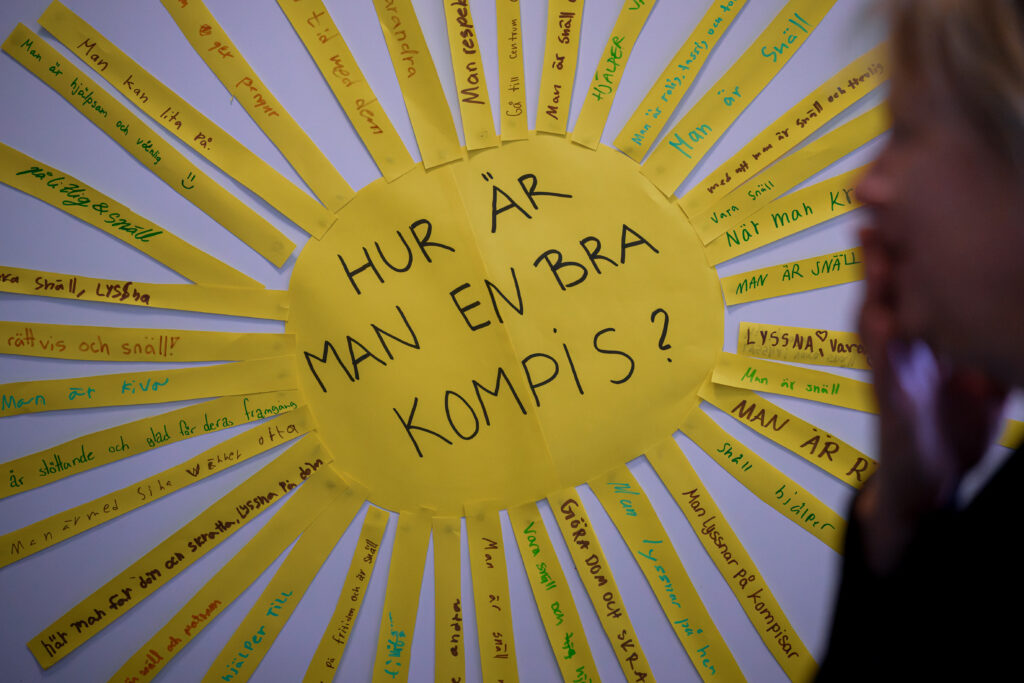 HUR ÄR
MAN EN BRA
KOMPIS?
Man kan lita på
Man är hjälpsam och vänlig
pålitlig & snäll
snäll, LYSSNA
rättvis och snäll!
Man är
är stöttande och glad för deras framgång
Man är med
när man får dom och skratta, Lyssna på dom
snäll och
hjälper TILL
på fritiden och är snäll
andra
Man är snäll
Vara snäll och
GÖRA DOM OCH SKRA
Man lyssnar på
Man Lyssnar på kompisar
Snäll hjälper
MAN ÄR R
Man är snäll
LYSSNA, vara
MAN ÄR SNÄLL
När man
Vara Snäll
med att man är snäll och trevlig
Man är Snäll
Man är rolig, hänsyn och
HJÄLPER
Man är snäll
Gå till centrum
Man respek
varandra
tid med dem
ger pengar